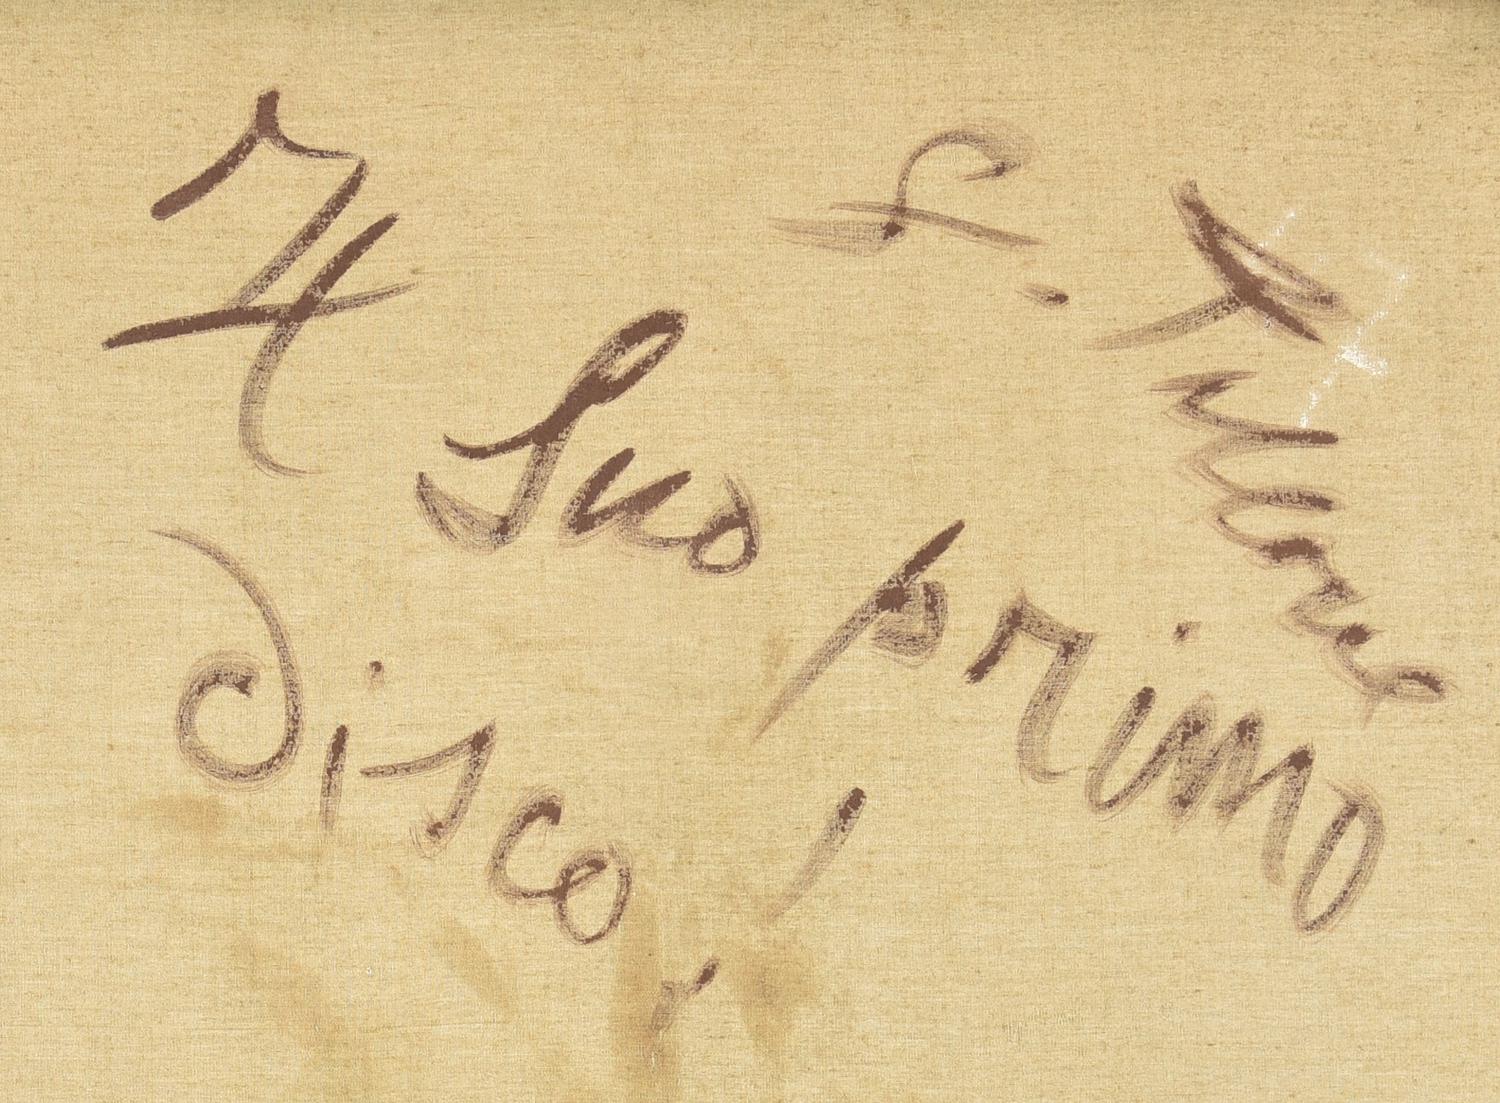 Il Suo primo
disco